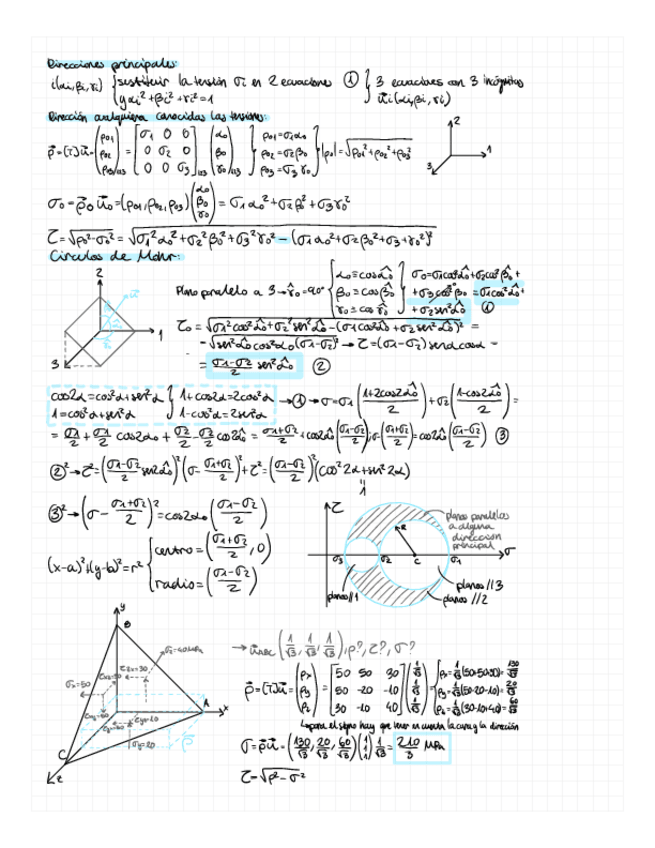 Direcciones principales:
i(αi, βi, γi) { sustituir la tensión σi en 2 ecuaciones ① } 3 ecuaciones con 3 incógnitas
y αi²+βi²+γi²=1 ūi(αi, βi, γi)
Dirección cualquiera conocidas las tensiones:
p̄=[T]ū=(p01 p02 p03)123 = [σ1 0 0 / 0 σ2 0 / 0 0 σ3]123 (α0 β0 γ0)123 { p01=σ1α0 p02=σ2β0 p03=σ3γ0 } |p0|=√p01²+p02²+p03²
2
1
3
σ0=p̄0 ū0=(p01, p02, p03)(α0 β0 γ0) = σ1α0²+σ2β0²+σ3γ0²
τ=√p0²-σ0² = √σ1²α0²+σ2²β0²+σ3²γ0² - (σ1α0²+σ2β0²+σ3+γ0²)²
Círculos de Mohr:
2
1
3
Plano paralelo a 3→γ̂0=90° { α0=cosα̂0 β0=cosβ̂0 γ0=cosγ̂0 } σ0=σ1cos²α̂0+σ2cos²β̂0+
+σ3cos²γ̂0=σ1cos²α̂0+
+σ2sen²α̂0 ①
τ0=√σ1²cos²α̂0+σ2²sen²α̂0-(σ1cos²α̂0+σ2sen²α̂0)² =
=√sen²α̂0cos²α0(σ1-σ2)² → τ=(σ1-σ2)senαcosα =
= σ1-σ2/2 sen²α̂0 ②
cos2α=cos²α+sen²α } 1+cos2α=2cos²α →①→σ=σ1(1+2cos2α̂0/2)+σ2(1-cos2α̂0/2)=
1=cos²α+sen²α 1-cos²α=2sen²α
= σ1/2+σ1/2 cos2α0+σ2/2-σ2/2 cos2α̂0 = σ1+σ2/2+cos2α̂0(σ1-σ2/2); σ-(σ1+σ2/2)=cos2α̂0(σ1-σ2/2) ③
②²→τ²=(σ1-σ2/2 sen2α̂0)²(σ-σ1+σ2/2)²+τ²=(σ1-σ2/2)²(cos²2α+sen²2α)
=
1
③²→(σ-σ1+σ2/2)²=cos2α0(σ1-σ2/2)
(x-a)²+(y-b)²=r² { centro=(σ1+σ2/2, 0)
radio=(σ1-σ2/2)
τ
planos paralelos
a alguna
dirección
principal
R
σ
σ3
σ2
C
σ1
planos//1
planos//3
planos//2
y
B
→ūABC(1/√3, 1/√3, 1/√3), p?, τ?, σ?
σx=50
A
x
σy=20
C
z
p̄=[T]ū=(px py pz)=[50 50 30 / 50 -20 -10 / 30 -10 40](1/√3 1/√3 1/√3) { px=1/√3(50+50+30)=130/√3
py=1/√3(50-20-10)=20/√3
pz=1/√3(30-10+40)=60/√3
para el signo hay que tener en cuenta la cara y la dirección
σ=p̄ū=(130/√3, 20/√3, 60/√3)(1 1 1)1/√3=210/3 MPa
τ=√p²-σ²